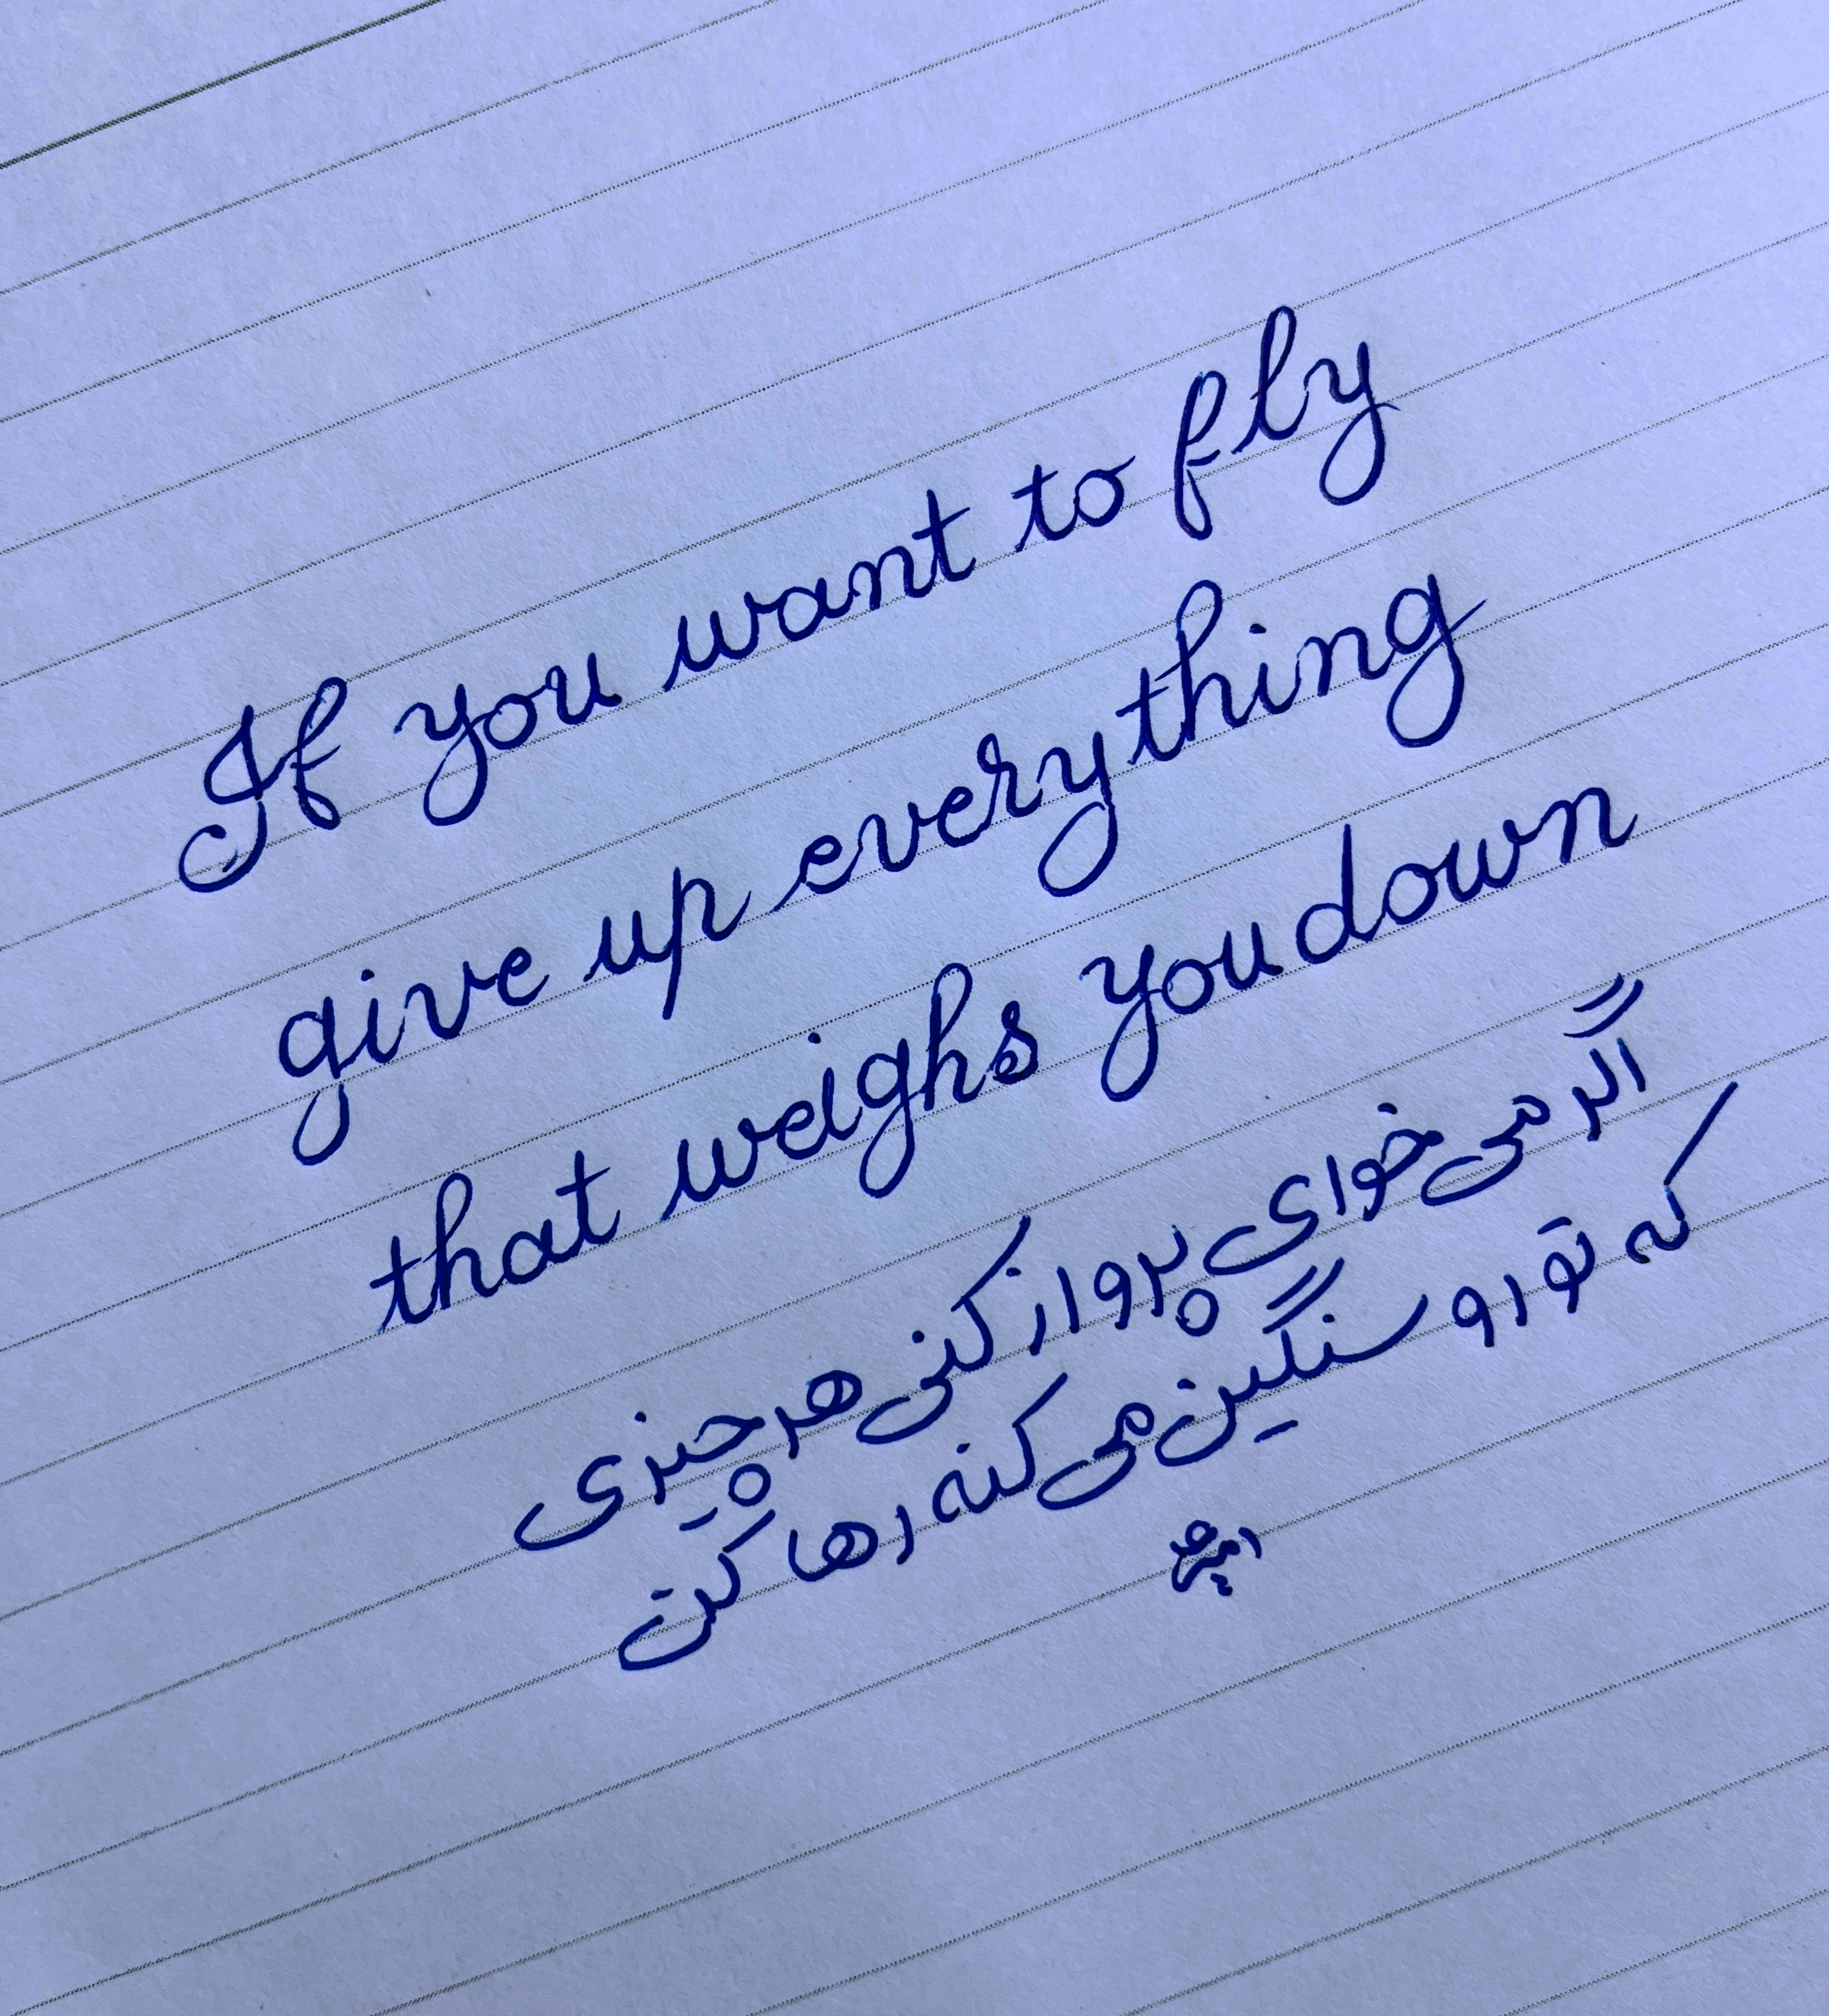 If you want to fly
give up everything
that weighs you down
اگر می خوای پرواز کنی هر چیزی
که تو رو سنگین می کنه رها کن